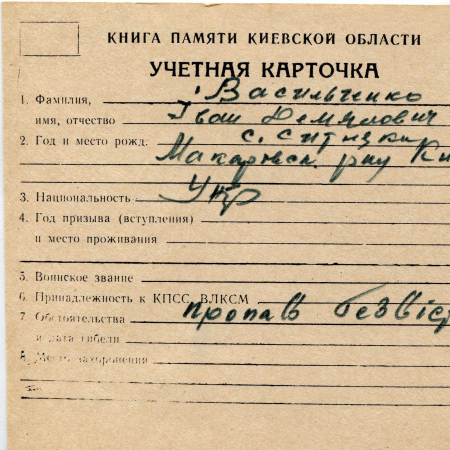 КНИГА ПАМЯТИ КИЕВСКОЙ ОБЛАСТИ
УЧЕТНАЯ КАРТОЧКА
1. Фамилия, Васильченко
имя, отчество Іван Демянович
2. Год и место рожд. с. Ситняки
Макаровск. р-ну Ки
3. Национальность Укр
4. Год призыва (вступления)
и место проживания
5. Воинское звание
6. Принадлежность к КПСС, ВЛКСМ
7. Обстоятельства пропав безвіст
и дата гибели
8. Место захоронения